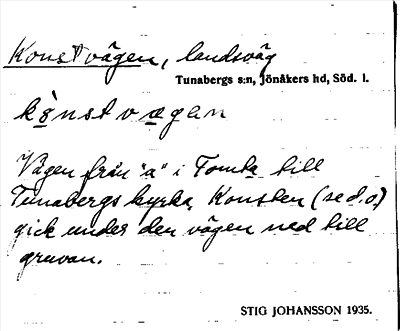 Konstvägen, landsväg
Tunabergs s:n, Jönåkers hd, Söd. l.
kȯnstvægan
Vägen från "a" i Tomta till
Tunabergs kyrka. Konsten (se d.o.)
gick under den vägen ned till
gruvan.
STIG JOHANSSON 1935.